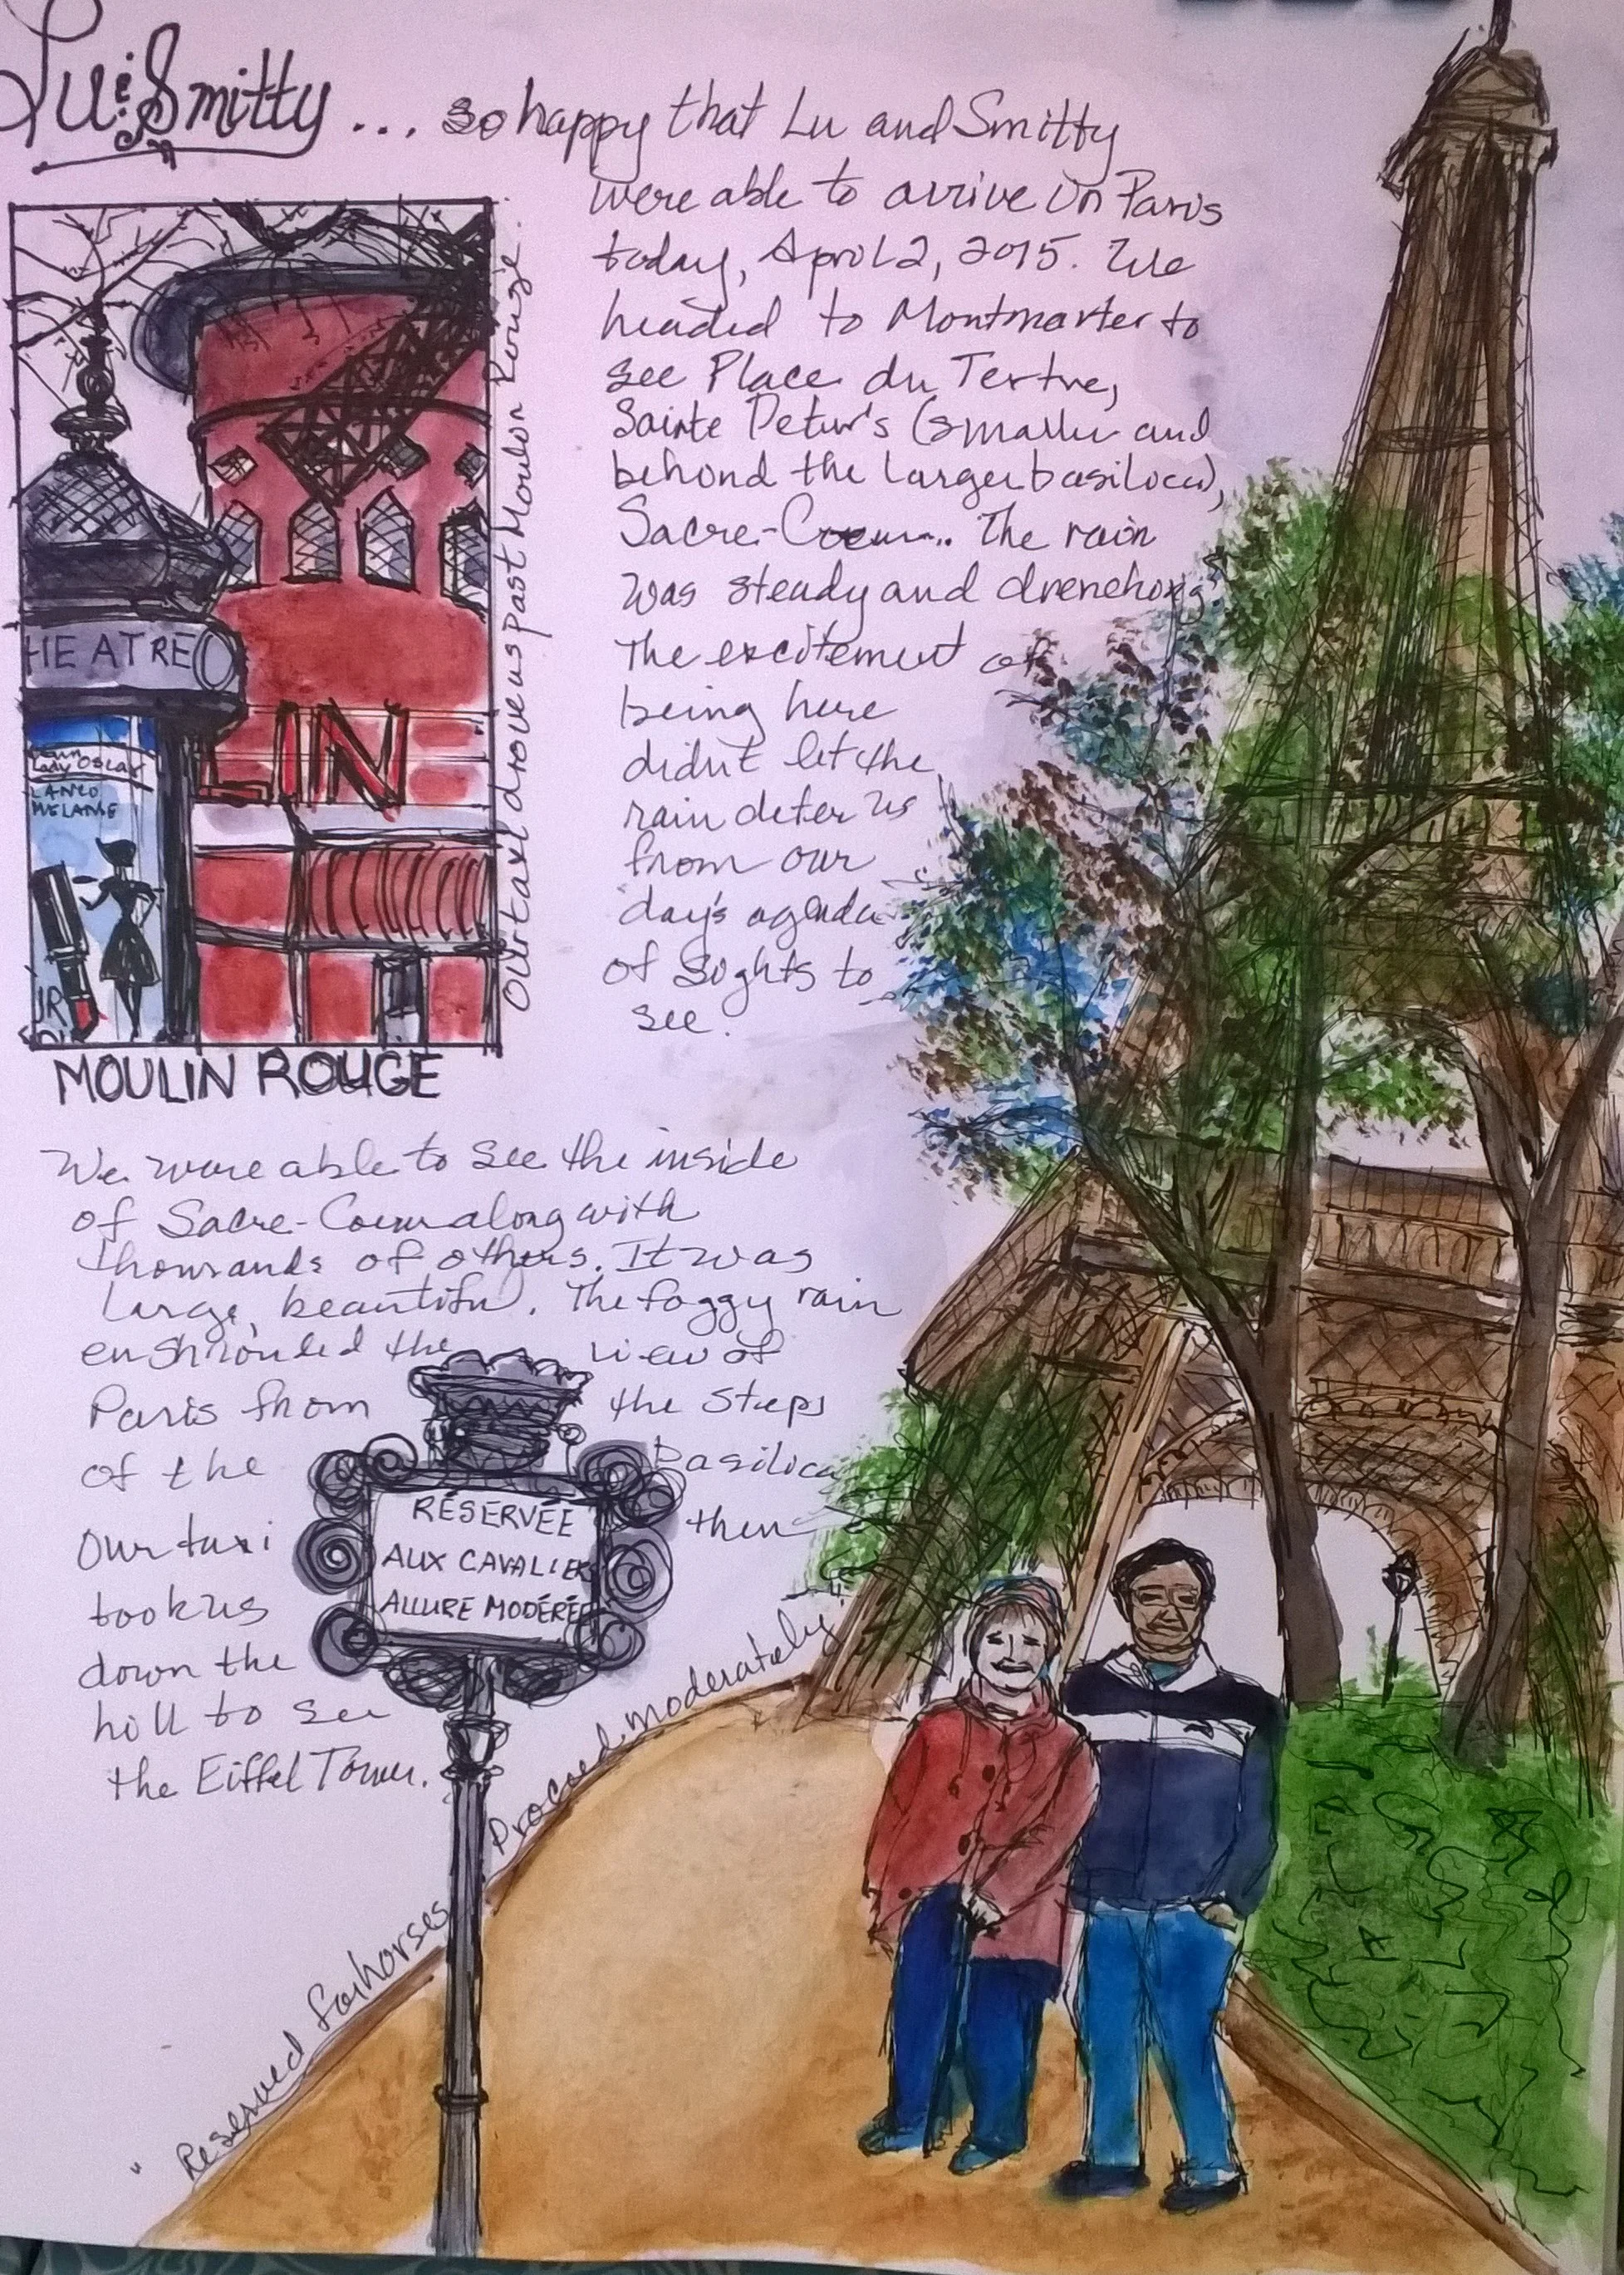 Lu & Smitty ... so happy that Lu and Smitty
were able to arrive in Paris
today, April 2, 2015. We
headed to Montmarter to
see Place du Tertre,
Sainte Peter's (smaller and
behind the larger basilica),
Sacre-Coeur.. The rain
was steady and drenching
The excitement of
being here
didn't let the
rain deter us
from our
day's agenda
of sights to
see.
Our taxi drove us past Moulon Rouge.
HEATRE
LIN
Lady Oscar
MELANGE
MOULIN ROUGE
We were able to see the inside
of Sacre-Coeur along with
thousands of others. It was
large, beautiful. The foggy rain
enshrouded the view of
Paris from the steps
of the Basilica
Our taxi then
took us
down the
hill to see
the Eiffel Tower.
RÉSERVÉE
AUX CAVALIERS
ALLURE MODÉRÉE
"Reserved for horses
Proceed moderately"